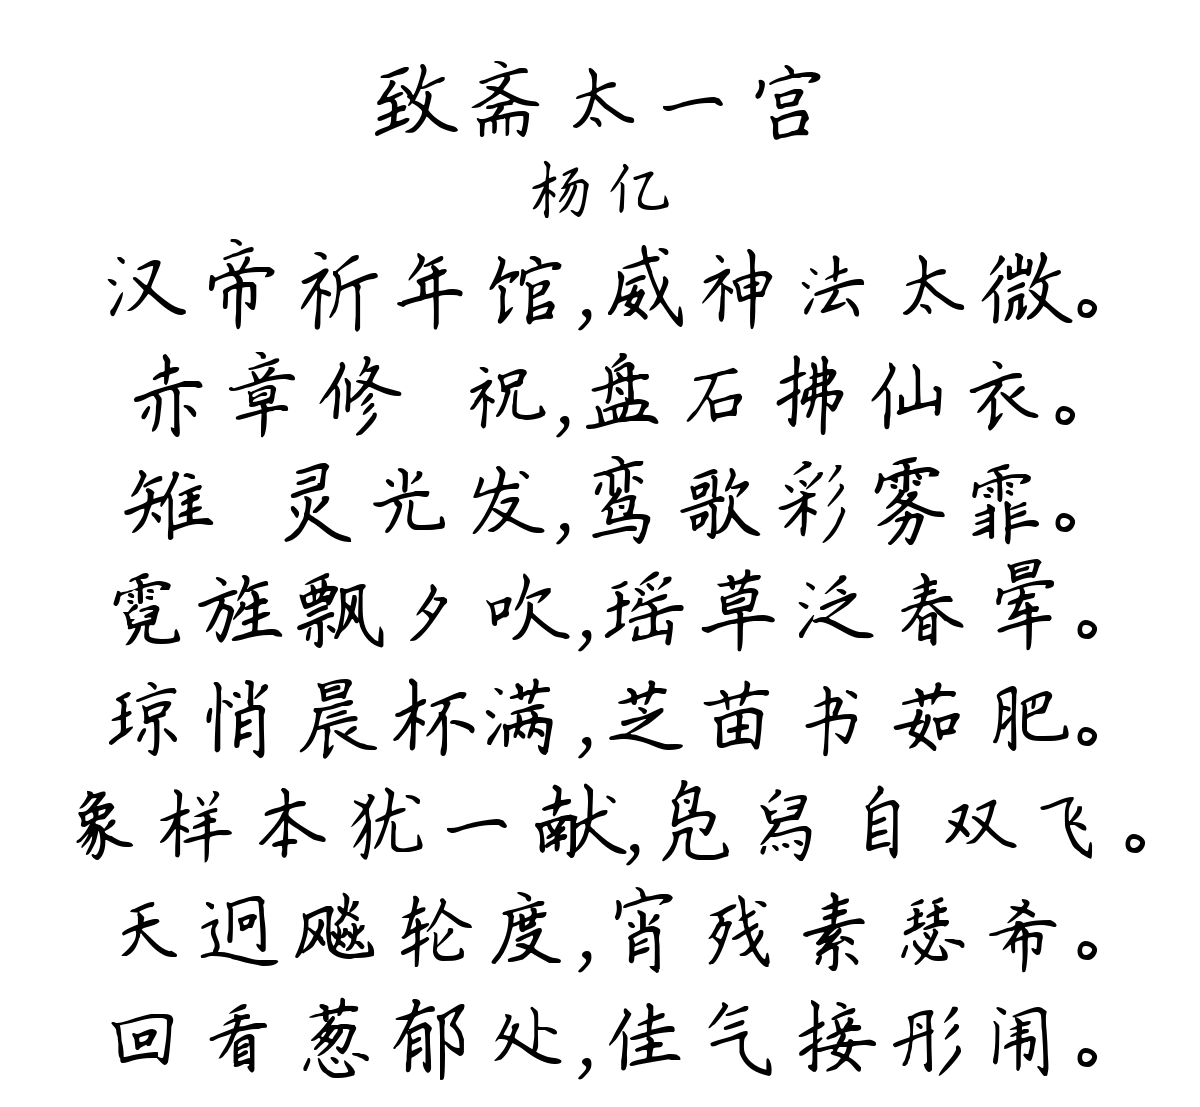 致斋太一宫
杨亿
汉帝祈年馆,威神法太微。
赤章修 祝,盘石拂仙衣。
雉 灵光发,鸾歌彩雾霏。
霓旌飘夕吹,瑶草泛春晕。
琼悄晨杯满,芝苗书茹肥。
象样本犹一献,凫舄自双飞。
天迥飚轮度,宵残素瑟希。
回看葱郁处,佳气接彤闱。